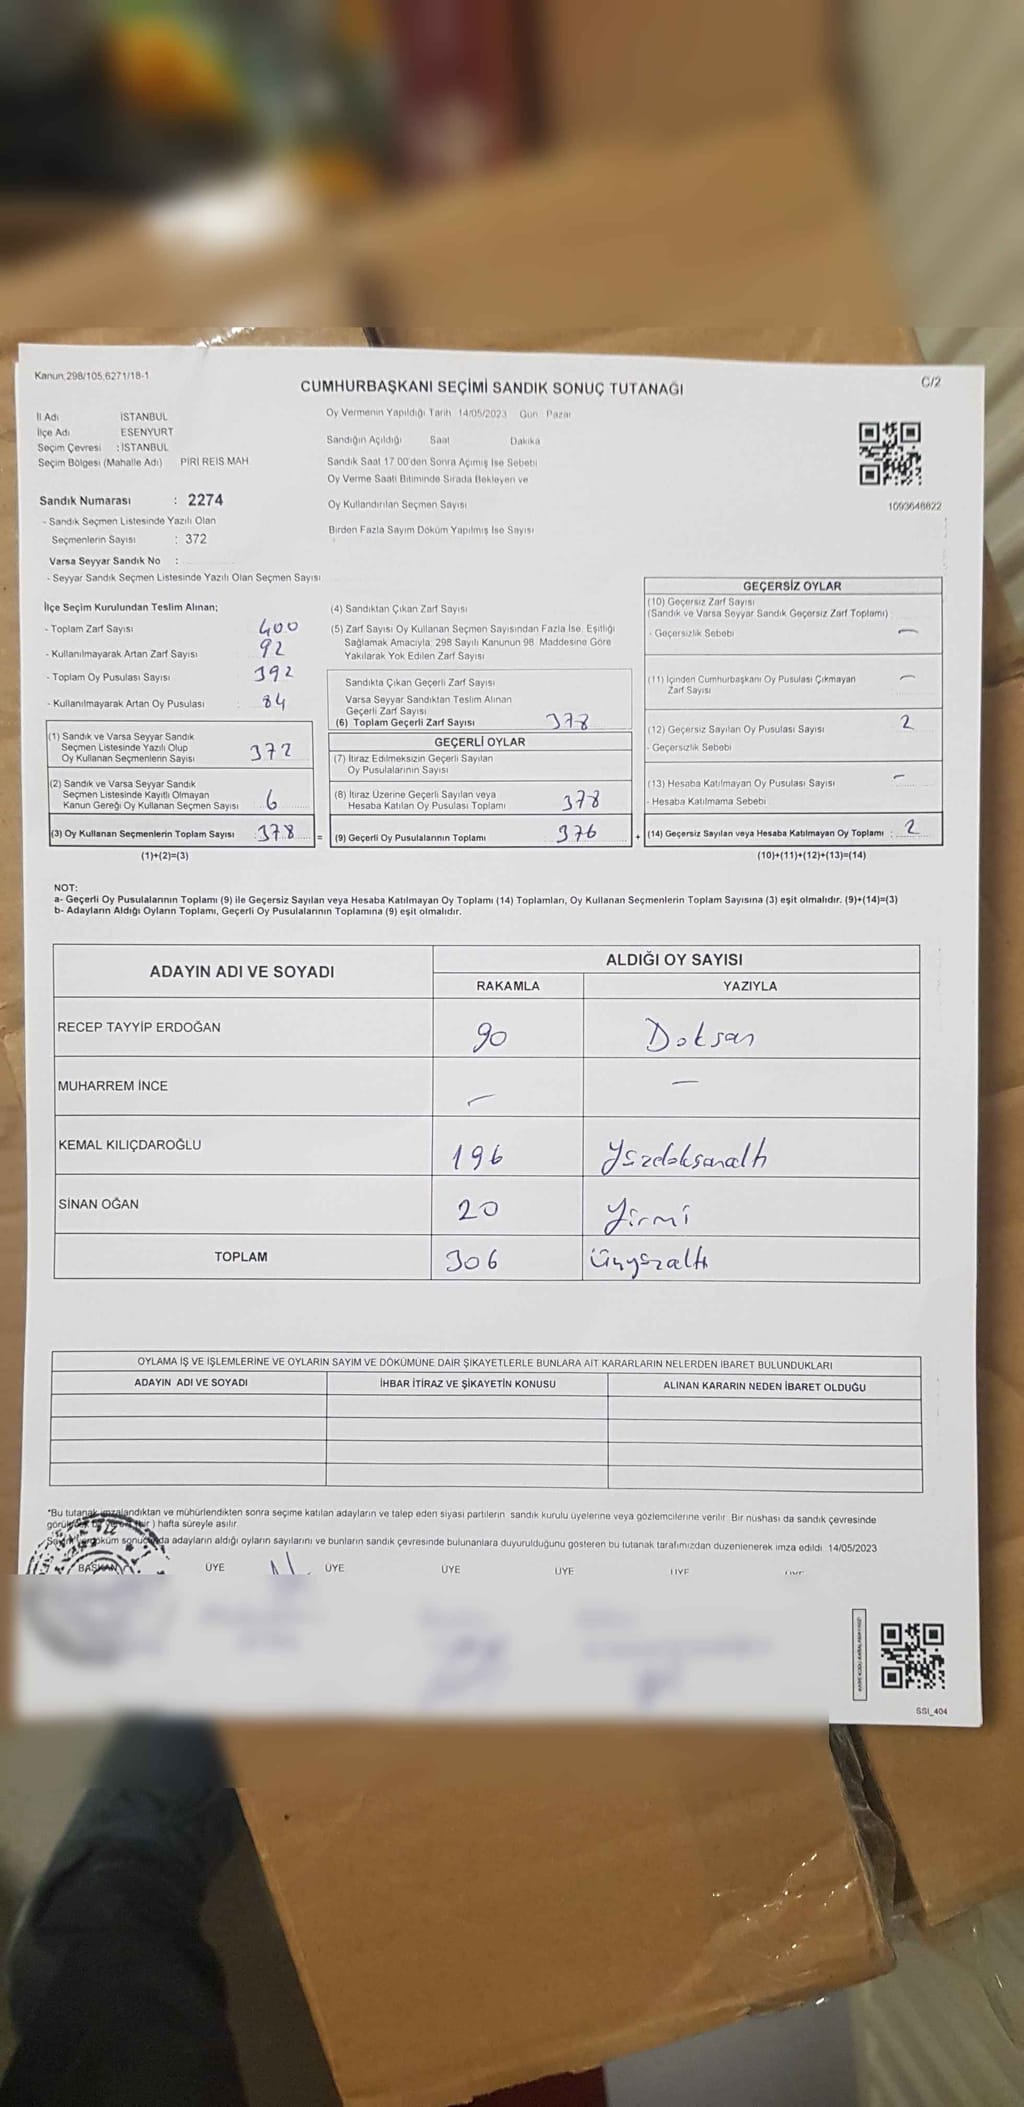 Kanun,298/105,6271/18-1
C/2
CUMHURBAŞKANI SEÇİMİ SANDIK SONUÇ TUTANAĞI
İl Adı İSTANBUL
İlçe Adı ESENYURT
Seçim Çevresi : İSTANBUL
Seçim Bölgesi (Mahalle Adı) PİRİ REİS MAH
Oy Vermenin Yapıldığı Tarih 14/05/2023 Gün Pazar
Sandığın Açıldığı Saat Dakika
Sandık Saat 17 00'den Sonra Açımış İse Sebebi
Oy Verme Saati Bitiminde Sırada Bekleyen ve
Oy Kullandırılan Seçmen Sayısı
Birden Fazla Sayım Döküm Yapılmış İse Sayısı
1093648822
Sandık Numarası : 2274
- Sandık Seçmen Listesinde Yazılı Olan
Seçmenlerin Sayısı : 372
Varsa Seyyar Sandık No :
- Seyyar Sandık Seçmen Listesinde Yazılı Olan Seçmen Sayısı
İlçe Seçim Kurulundan Teslim Alınan;
- Toplam Zarf Sayısı 400
- Kullanılmayarak Artan Zarf Sayısı 92
- Toplam Oy Pusulası Sayısı 392
- Kullanılmayarak Artan Oy Pusulası 84
(1) Sandık ve Varsa Seyyar Sandık
Seçmen Listesinde Yazılı Olup
Oy Kullanan Seçmenlerin Sayısı 372
(2) Sandık ve Varsa Seyyar Sandık
Seçmen Listesinde Kayıtlı Olmayan
Kanun Gereği Oy Kullanan Seçmen Sayısı 6
(3) Oy Kullanan Seçmenlerin Toplam Sayısı : 378 =
(1)+(2)=(3)
(4) Sandıktan Çıkan Zarf Sayısı
(5) Zarf Sayısı Oy Kullanan Seçmen Sayısından Fazla İse, Eşitliği
Sağlamak Amacıyla; 298 Sayılı Kanunun 98. Maddesine Göre
Yakılarak Yok Edilen Zarf Sayısı
Sandıkta Çıkan Geçerli Zarf Sayısı
Varsa Seyyar Sandıktan Teslim Alınan
Geçerli Zarf Sayısı
(6) Toplam Geçerli Zarf Sayısı 378
GEÇERLİ OYLAR
(7) İtiraz Edilmeksizin Geçerli Sayılan
Oy Pusulalarının Sayısı
(8) İtiraz Üzerine Geçerli Sayılan veya
Hesaba Katılan Oy Pusulası Toplamı 378
(9) Geçerli Oy Pusulalarının Toplamı 376 +
GEÇERSİZ OYLAR
(10) Geçersiz Zarf Sayısı
(Sandık ve Varsa Seyyar Sandık Geçersiz Zarf Toplamı)
- Geçersizlik Sebebi —
(11) İçinden Cumhurbaşkanı Oy Pusulası Çıkmayan —
Zarf Sayısı
(12) Geçersiz Sayılan Oy Pusulası Sayısı 2
- Geçersizlik Sebebi
(13) Hesaba Katılmayan Oy Pusulası Sayısı —
- Hesaba Katılmama Sebebi
(14) Geçersiz Sayılan veya Hesaba Katılmayan Oy Toplamı : 2
(10)+(11)+(12)+(13)=(14)
NOT:
a- Geçerli Oy Pusulalarının Toplamı (9) ile Geçersiz Sayılan veya Hesaba Katılmayan Oy Toplamı (14) Toplamları, Oy Kullanan Seçmenlerin Toplam Sayısına (3) eşit olmalıdır. (9)+(14)=(3)
b- Adayların Aldığı Oyların Toplamı, Geçerli Oy Pusulalarının Toplamına (9) eşit olmalıdır.
ADAYIN ADI VE SOYADI ALDIĞI OY SAYISI
RAKAMLA YAZIYLA
RECEP TAYYİP ERDOĞAN 90 Doksan
MUHARREM İNCE — —
KEMAL KILIÇDAROĞLU 196 Yüzdoksanaltı
SİNAN OĞAN 20 Yirmi
TOPLAM 306 Üçyüzaltı
OYLAMA İŞ VE İŞLEMLERİNE VE OYLARIN SAYIM VE DÖKÜMÜNE DAİR ŞİKAYETLERLE BUNLARA AİT KARARLARIN NELERDEN İBARET BULUNDUKLARI
ADAYIN ADI VE SOYADI İHBAR İTİRAZ VE ŞİKAYETİN KONUSU ALINAN KARARIN NEDEN İBARET OLDUĞU
*Bu tutanak imzalandıktan ve mühürlendikten sonra seçime katılan adayların ve talep eden siyasi partilerin sandık kurulu üyelerine veya gözlemcilerine verilir. Bir nüshası da sandık çevresinde
) hafta süreyle asılır.
adayların aldığı oyların sayılarını ve bunların sandık çevresinde bulunanlara duyurulduğunu gösteren bu tutanak tarafımızdan düzenlenerek imza edildi. 14/05/2023
BAŞKAN ÜYE ÜYE ÜYE ÜYE ÜYE
SSI_404